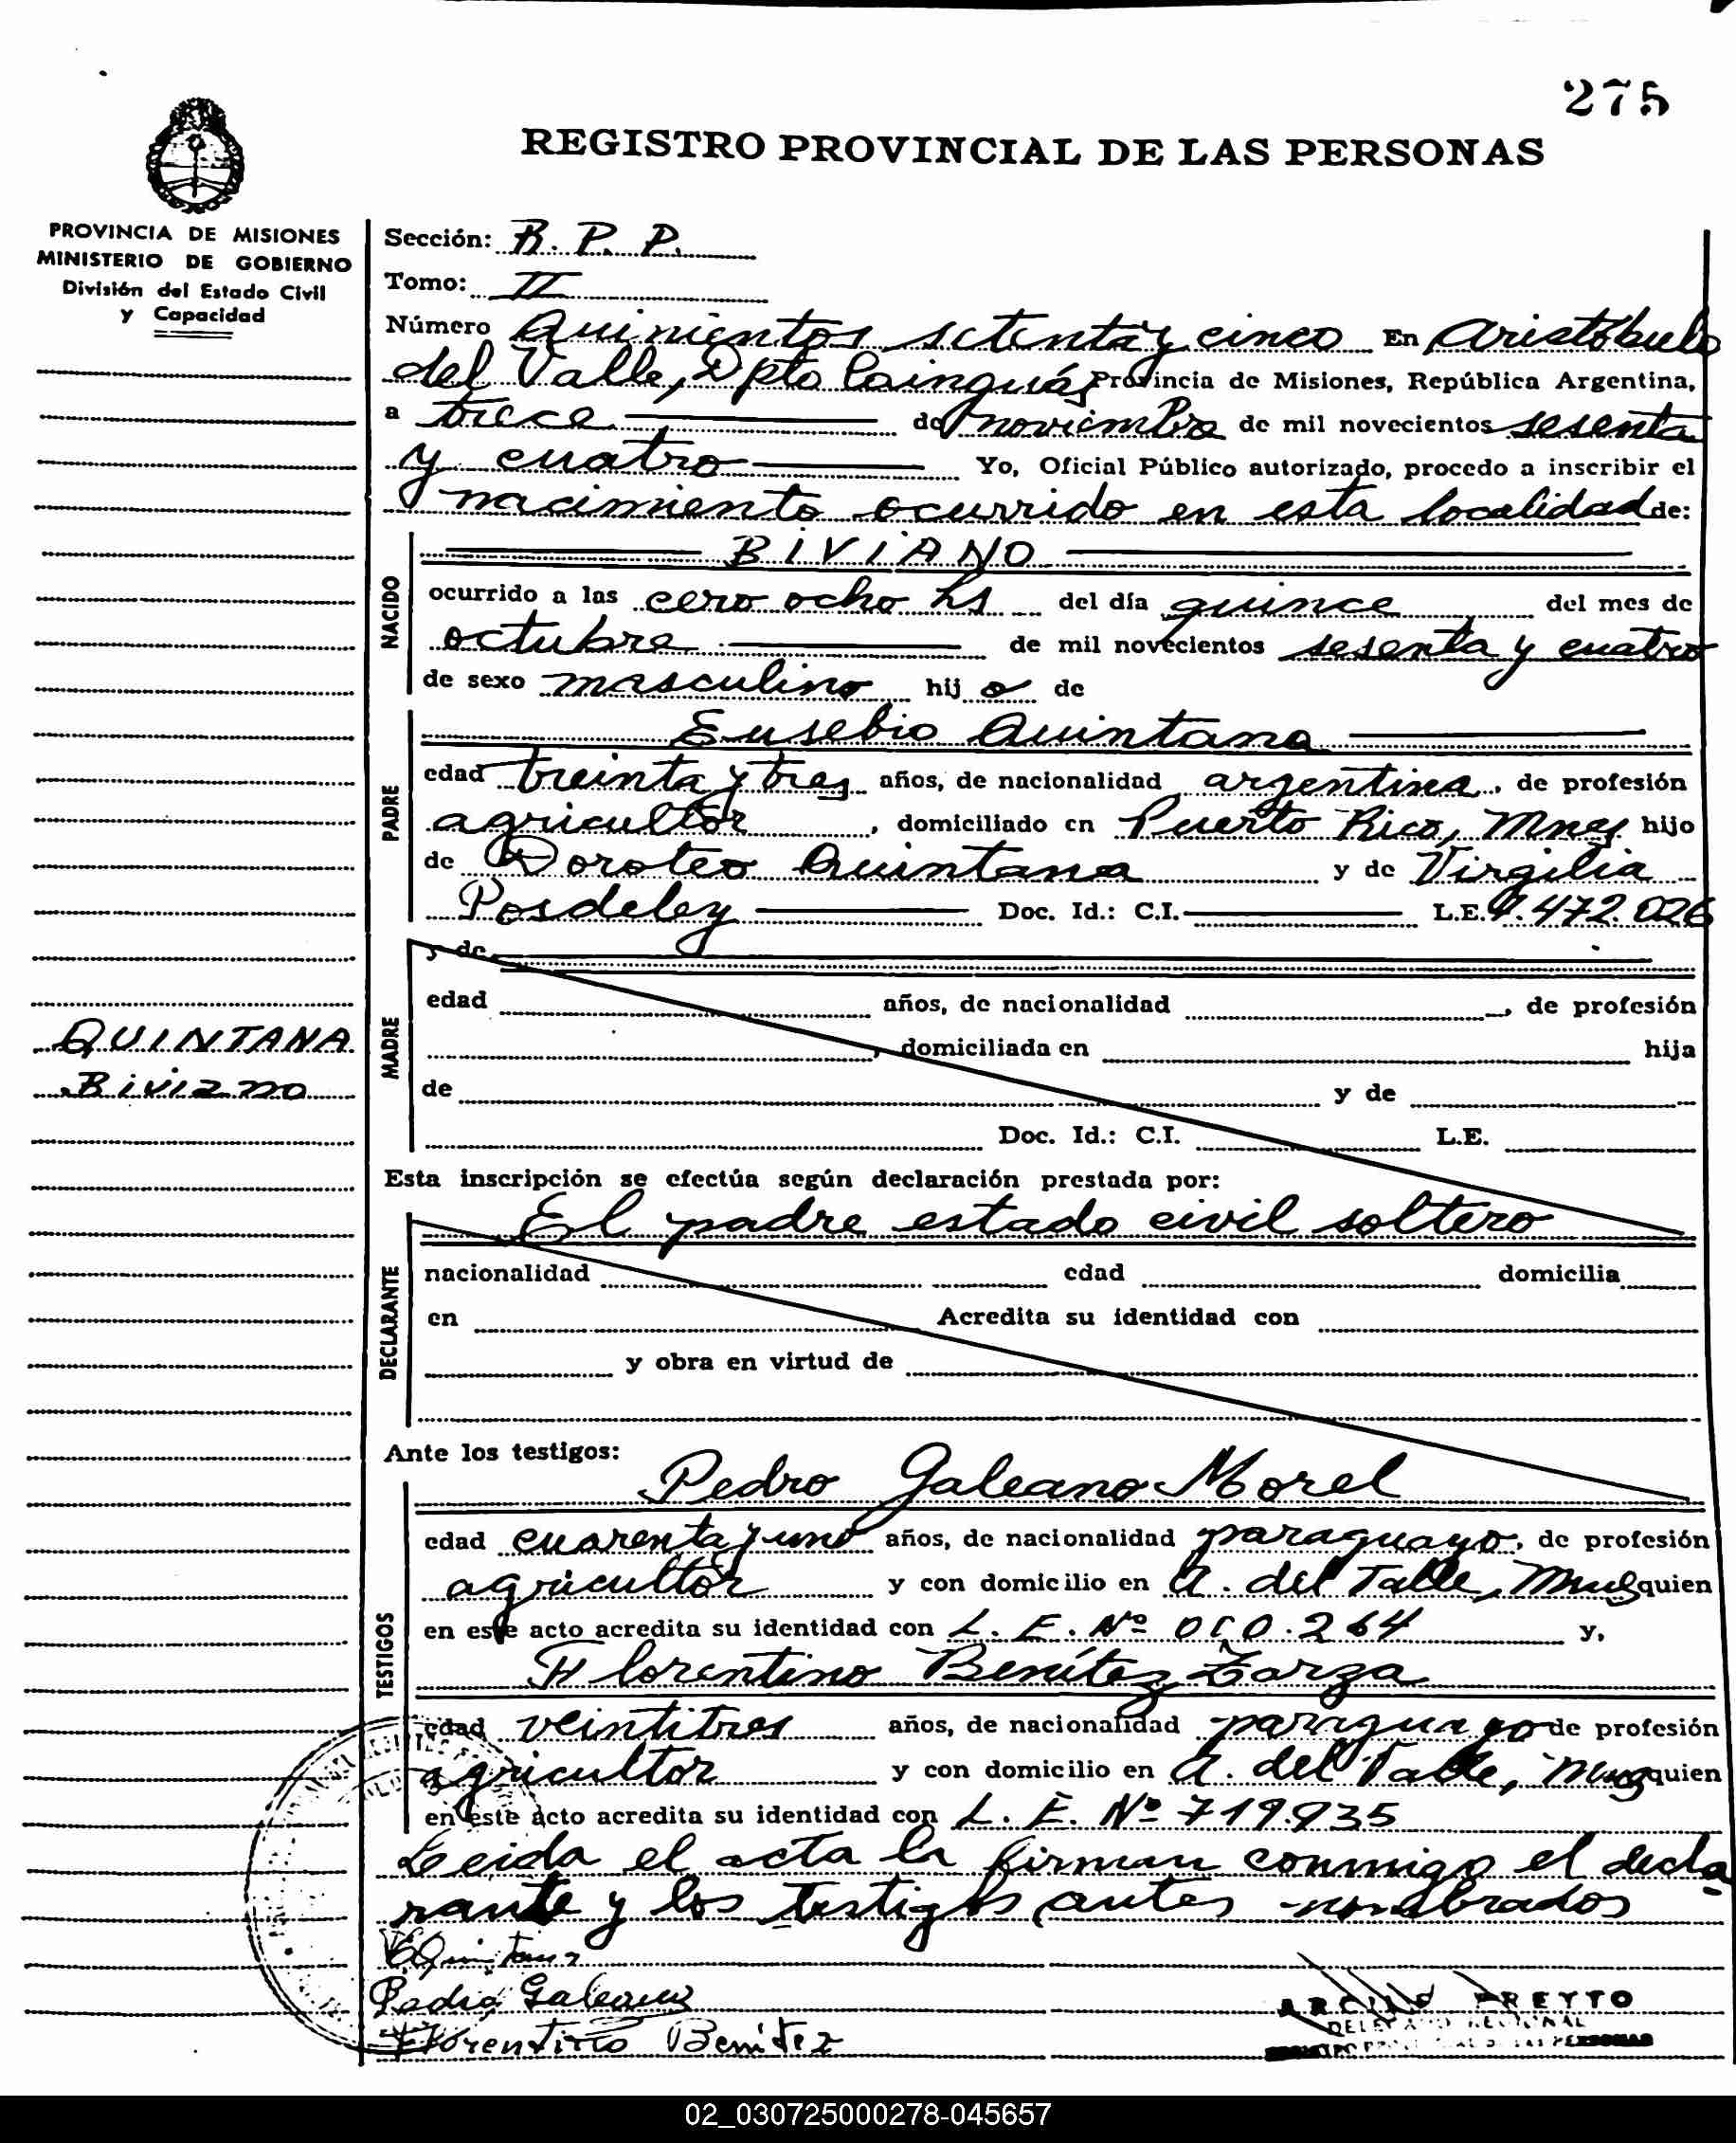 275
REGISTRO PROVINCIAL DE LAS PERSONAS
PROVINCIA DE MISIONES
MINISTERIO DE GOBIERNO
División del Estado Civil
y Capacidad
QUINTANA
Biviano
Sección: R. P. P.
Tomo: II
Número Quinientos setenta y cinco En Aristóbulo
del Valle, Dpto Cainguás Provincia de Misiones, República Argentina,
a trece de noviembre de mil novecientos sesenta
y cuatro Yo, Oficial Público autorizado, procedo a inscribir el
nacimiento ocurrido en esta localidad de:
NACIDO
BIVIANO
ocurrido a las cero ocho hs del día quince del mes de
octubre de mil novecientos sesenta y cuatro
de sexo masculino hij o de
PADRE
Eusebio Quintana
edad treinta y tres años, de nacionalidad argentina, de profesión
agricultor, domiciliado en Puerto Rico, Mnes hijo
de Doroteo Quintana y de Virgilia
Posdeley Doc. Id.: C.I. L.E. 7.472.026
MADRE
y de
edad años, de nacionalidad , de profesión
, domiciliada en hija
de y de
Doc. Id.: C.I. L.E.
Esta inscripción se efectúa según declaración prestada por:
DECLARANTE
El padre estado civil soltero
nacionalidad edad domicilia
en Acredita su identidad con
y obra en virtud de
Ante los testigos:
TESTIGOS
Pedro Galeano Morel
edad cuarenta y uno años, de nacionalidad paraguayo, de profesión
agricultor y con domicilio en A. del Valle, Mnes quien
en este acto acredita su identidad con L. E. Nº 010.264 y,
Florentino Benítez Zarza
edad veintitres años, de nacionalidad paraguayo de profesión
agricultor y con domicilio en A. del Valle, Mnes quien
en este acto acredita su identidad con L. E. Nº 719.935
Leida el acta la firman conmigo el decla
rante y los testigos antes nombrados
EQuintana
Pedro Galeano
Florentino Benitez
PREYTO
DELEGADO REGIONAL
02_030725000278-045657